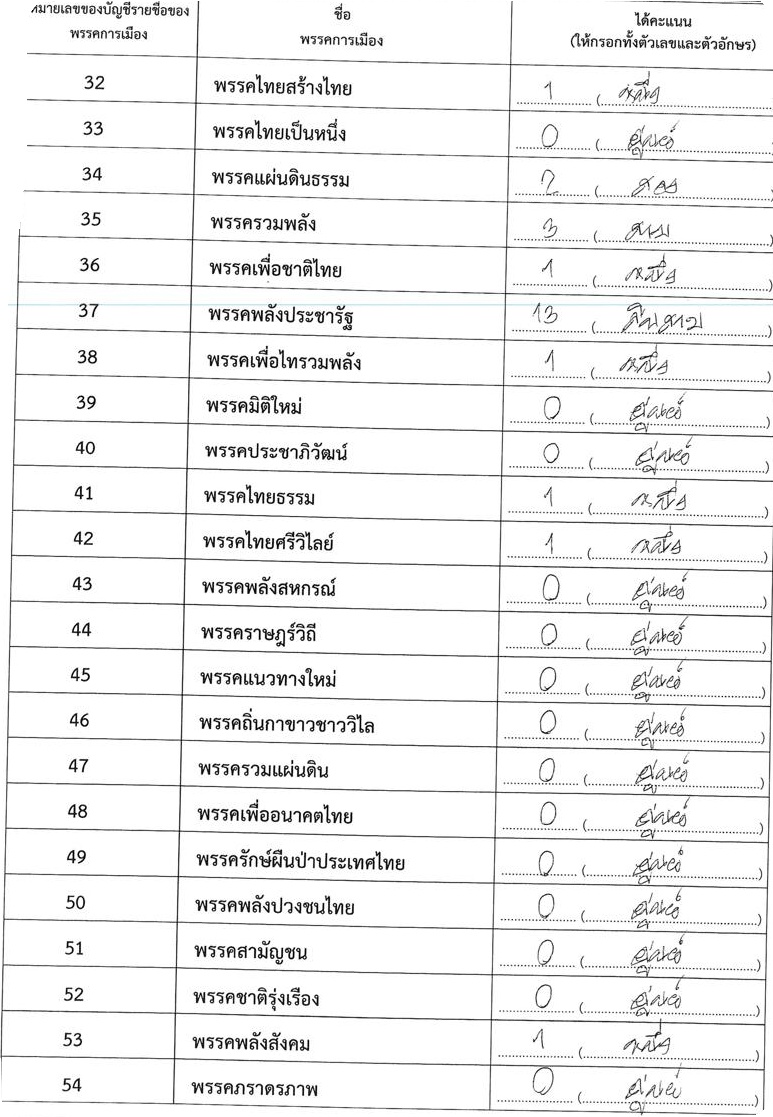 หมายเลขของบัญชีรายชื่อของ
พรรคการเมือง
ชื่อ
พรรคการเมือง
ได้คะแนน
(ให้กรอกทั้งตัวเลขและตัวอักษร)
32 พรรคไทยสร้างไทย 1 (หนึ่ง)
33 พรรคไทยเป็นหนึ่ง 0 (ศูนย์)
34 พรรคแผ่นดินธรรม 2 (สอง)
35 พรรครวมพลัง 3 (สาม)
36 พรรคเพื่อชาติไทย 1 (หนึ่ง)
37 พรรคพลังประชารัฐ 13 (สิบสาม)
38 พรรคเพื่อไทรวมพลัง 1 (หนึ่ง)
39 พรรคมิติใหม่ 0 (ศูนย์)
40 พรรคประชาภิวัฒน์ 0 (ศูนย์)
41 พรรคไทยธรรม 1 (หนึ่ง)
42 พรรคไทยศรีวิไลย์ 1 (หนึ่ง)
43 พรรคพลังสหกรณ์ 0 (ศูนย์)
44 พรรคราษฎร์วิถี 0 (ศูนย์)
45 พรรคแนวทางใหม่ 0 (ศูนย์)
46 พรรคถิ่นกาขาวชาววิไล 0 (ศูนย์)
47 พรรครวมแผ่นดิน 0 (ศูนย์)
48 พรรคเพื่ออนาคตไทย 0 (ศูนย์)
49 พรรครักษ์ผืนป่าประเทศไทย 0 (ศูนย์)
50 พรรคพลังปวงชนไทย 0 (ศูนย์)
51 พรรคสามัญชน 0 (ศูนย์)
52 พรรคชาติรุ่งเรือง 0 (ศูนย์)
53 พรรคพลังสังคม 1 (หนึ่ง)
54 พรรคภราดรภาพ 0 (ศูนย์)